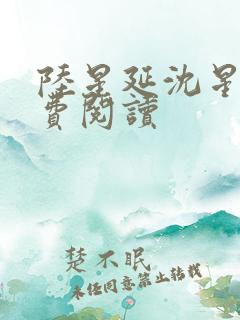 陸星延沈星
費閱讀
楚不眠
未经同意禁止转载